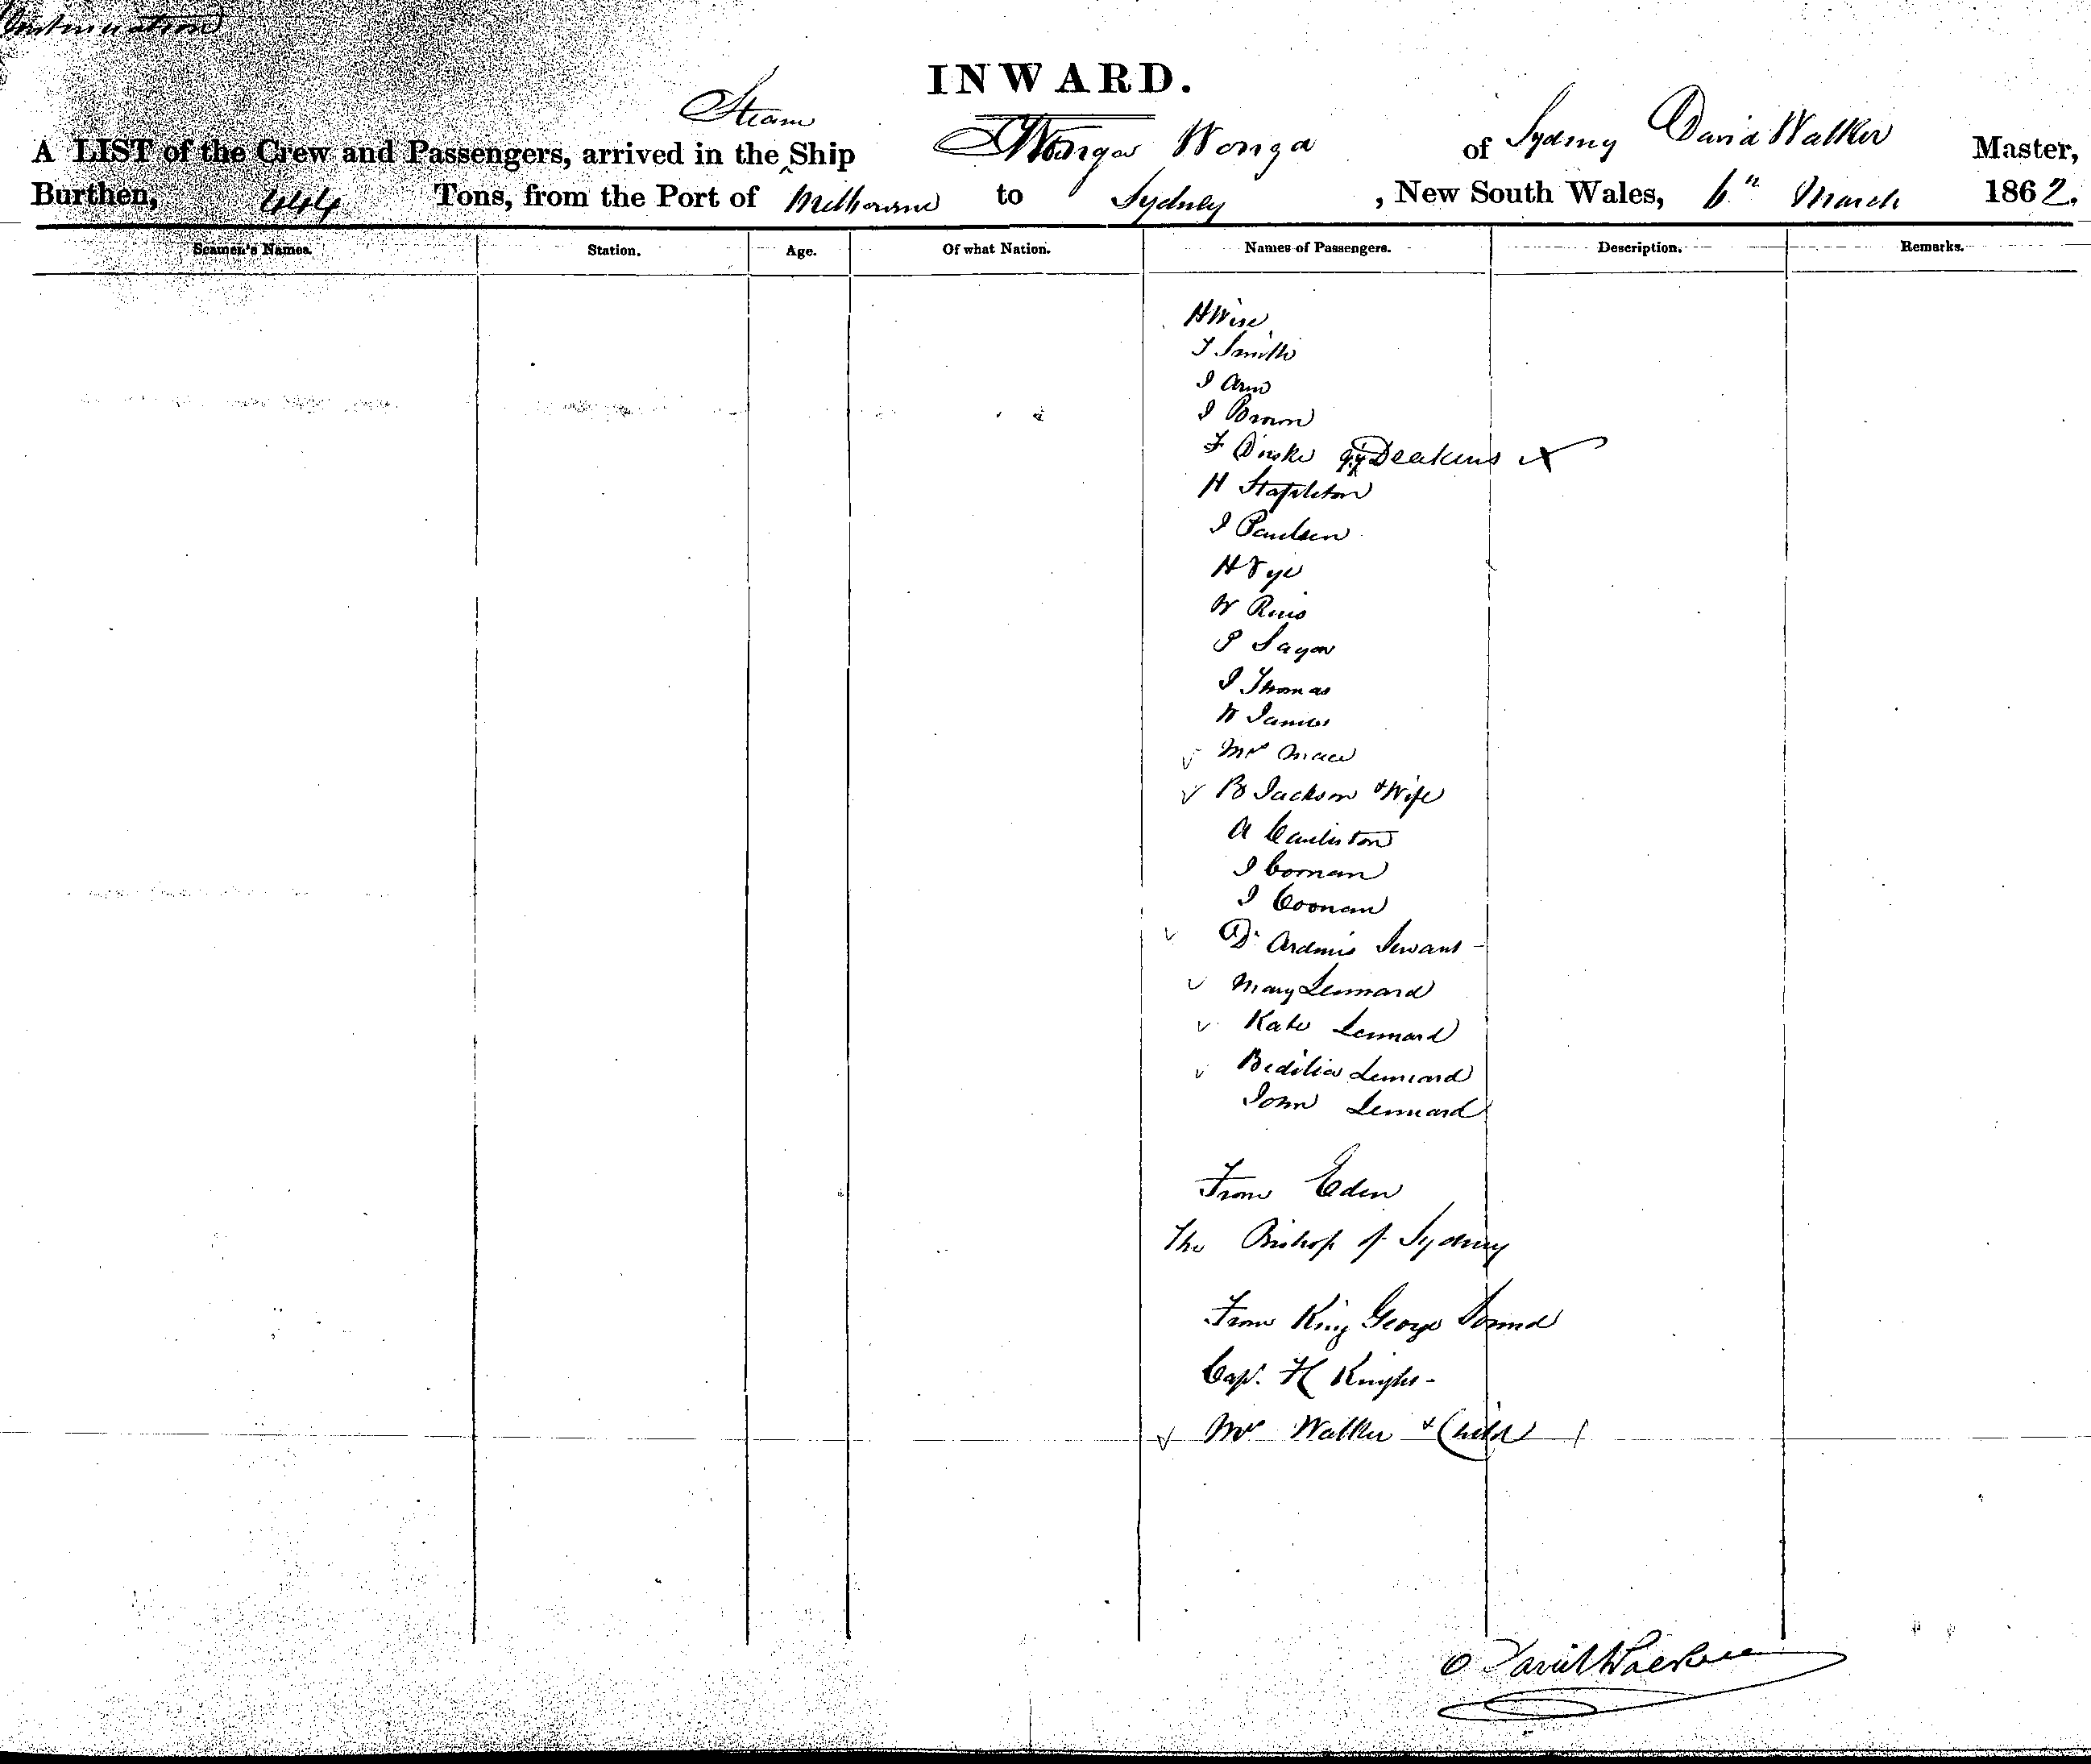 Continuation
INWARD.
A LIST of the Crew and Passengers, arrived in the Steam Ship Wonga Wonga of Sydney David Walker Master,
Burthen, 444 Tons, from the Port of Melbourne to Sydney, New South Wales, 6th March 1862.
Seamen's Names. Station. Age. Of what Nation. Names of Passengers. Description. Remarks.
H Wise
T Smith
J Arm
J Brown
F Deakins X
H Stapleton
J Paulsen
H Vye
W
P
J Thomas
W James
Mrs Mace
B Jackson & Wife
A
J Cornan
J Coonan
Servant
Mary Lennard
Kate Lennard
Bedilia Lennard
John Lennard
From Eden
The Bishop of Sydney
From King George Sound
Cap. H Knight
Mrs Walker & Child
David Walker